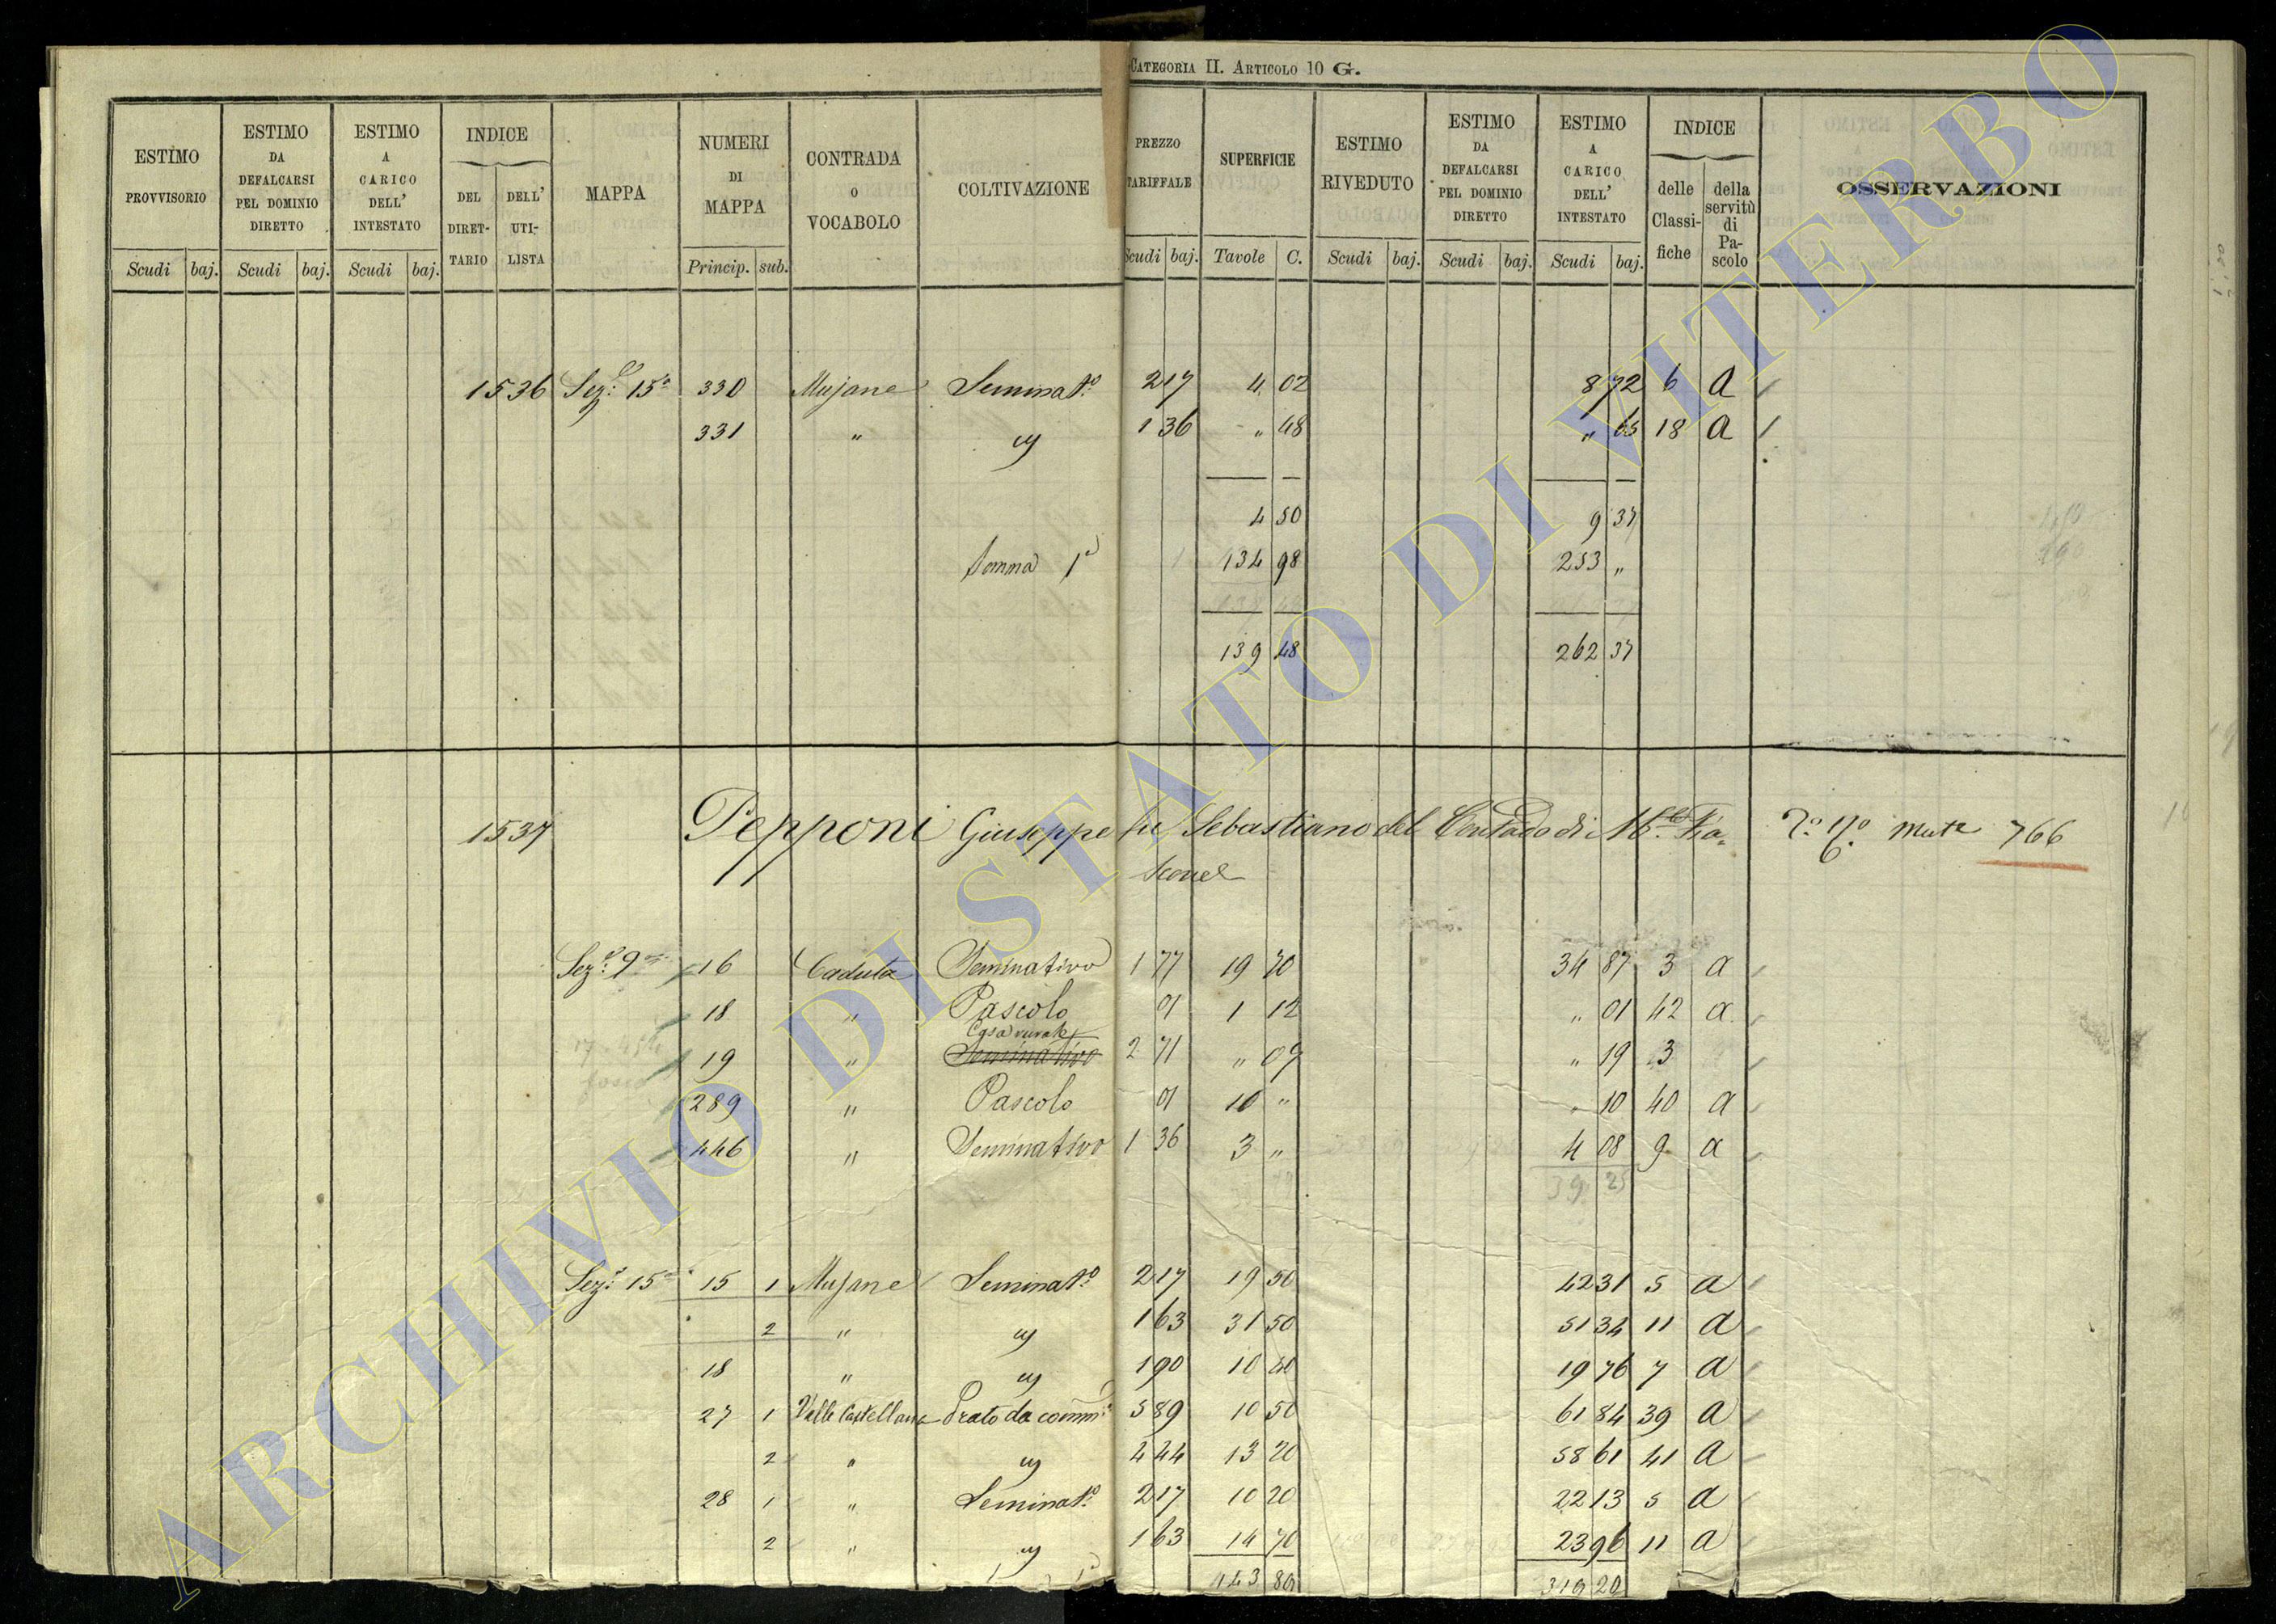 CATEGORIA II. ARTICOLO 10 G.
ESTIMO PROVVISORIO
ESTIMO DA DEFALCARSI PEL DOMINIO DIRETTO
ESTIMO A CARICO DELL' INTESTATO
INDICE
DEL DIRETTARIO
DELL' UTILISTA
MAPPA
NUMERI DI MAPPA
CONTRADA O VOCABOLO
COLTIVAZIONE
PREZZO TARIFFALE
SUPERFICIE
ESTIMO RIVEDUTO
ESTIMO DA DEFALCARSI PEL DOMINIO DIRETTO
ESTIMO A CARICO DELL' INTESTATO
INDICE
delle Classifiche
della servitù di Pascolo
OSSERVAZIONI
Scudi baj. Scudi baj. Scudi baj. Princip. sub. Scudi baj. Tavole C. Scudi baj. Scudi baj. Scudi baj.
1536 Sez.e 15a 330 Mujane Seminat.o 2 17 4 02 8 72 6 a
331 " " 1 36 " 48 " 65 18 a
4 50 9 37
Somma 1a 134 98 253 "
139 48 262 37
1537 Pepponi Giuseppe fu Sebastiano del Contado di M.te Fia=
scone
Mut.e 766
Sez.e 9a 16 Caduta Seminativo 1 77 19 70 34 87 3 a
18 " Pascolo 01 1 12 " 01 42 a
Casa rurale
19 " Seminativo 2 71 " 07 " 19 3
289 " Pascolo 01 10 " " 10 40 a
446 " Seminativo 1 36 3 " 4 08 9 a
39 25
Sez.e 15a 15 1 Mujane Seminat.o 2 17 19 50 42 31 5 a
2 " " 1 63 31 50 51 34 11 a
18 " " 1 90 10 40 19 76 7 a
27 1 Valle Castellana Prato da comm. 5 89 10 50 61 84 39 a
2 " " 4 44 13 20 58 61 41 a
28 1 " Seminat.o 2 17 10 20 22 13 5 a
2 " " 1 63 14 70 23 96 11 a
143 89 319 20
ARCHIVIO DI STATO DI VITERBO